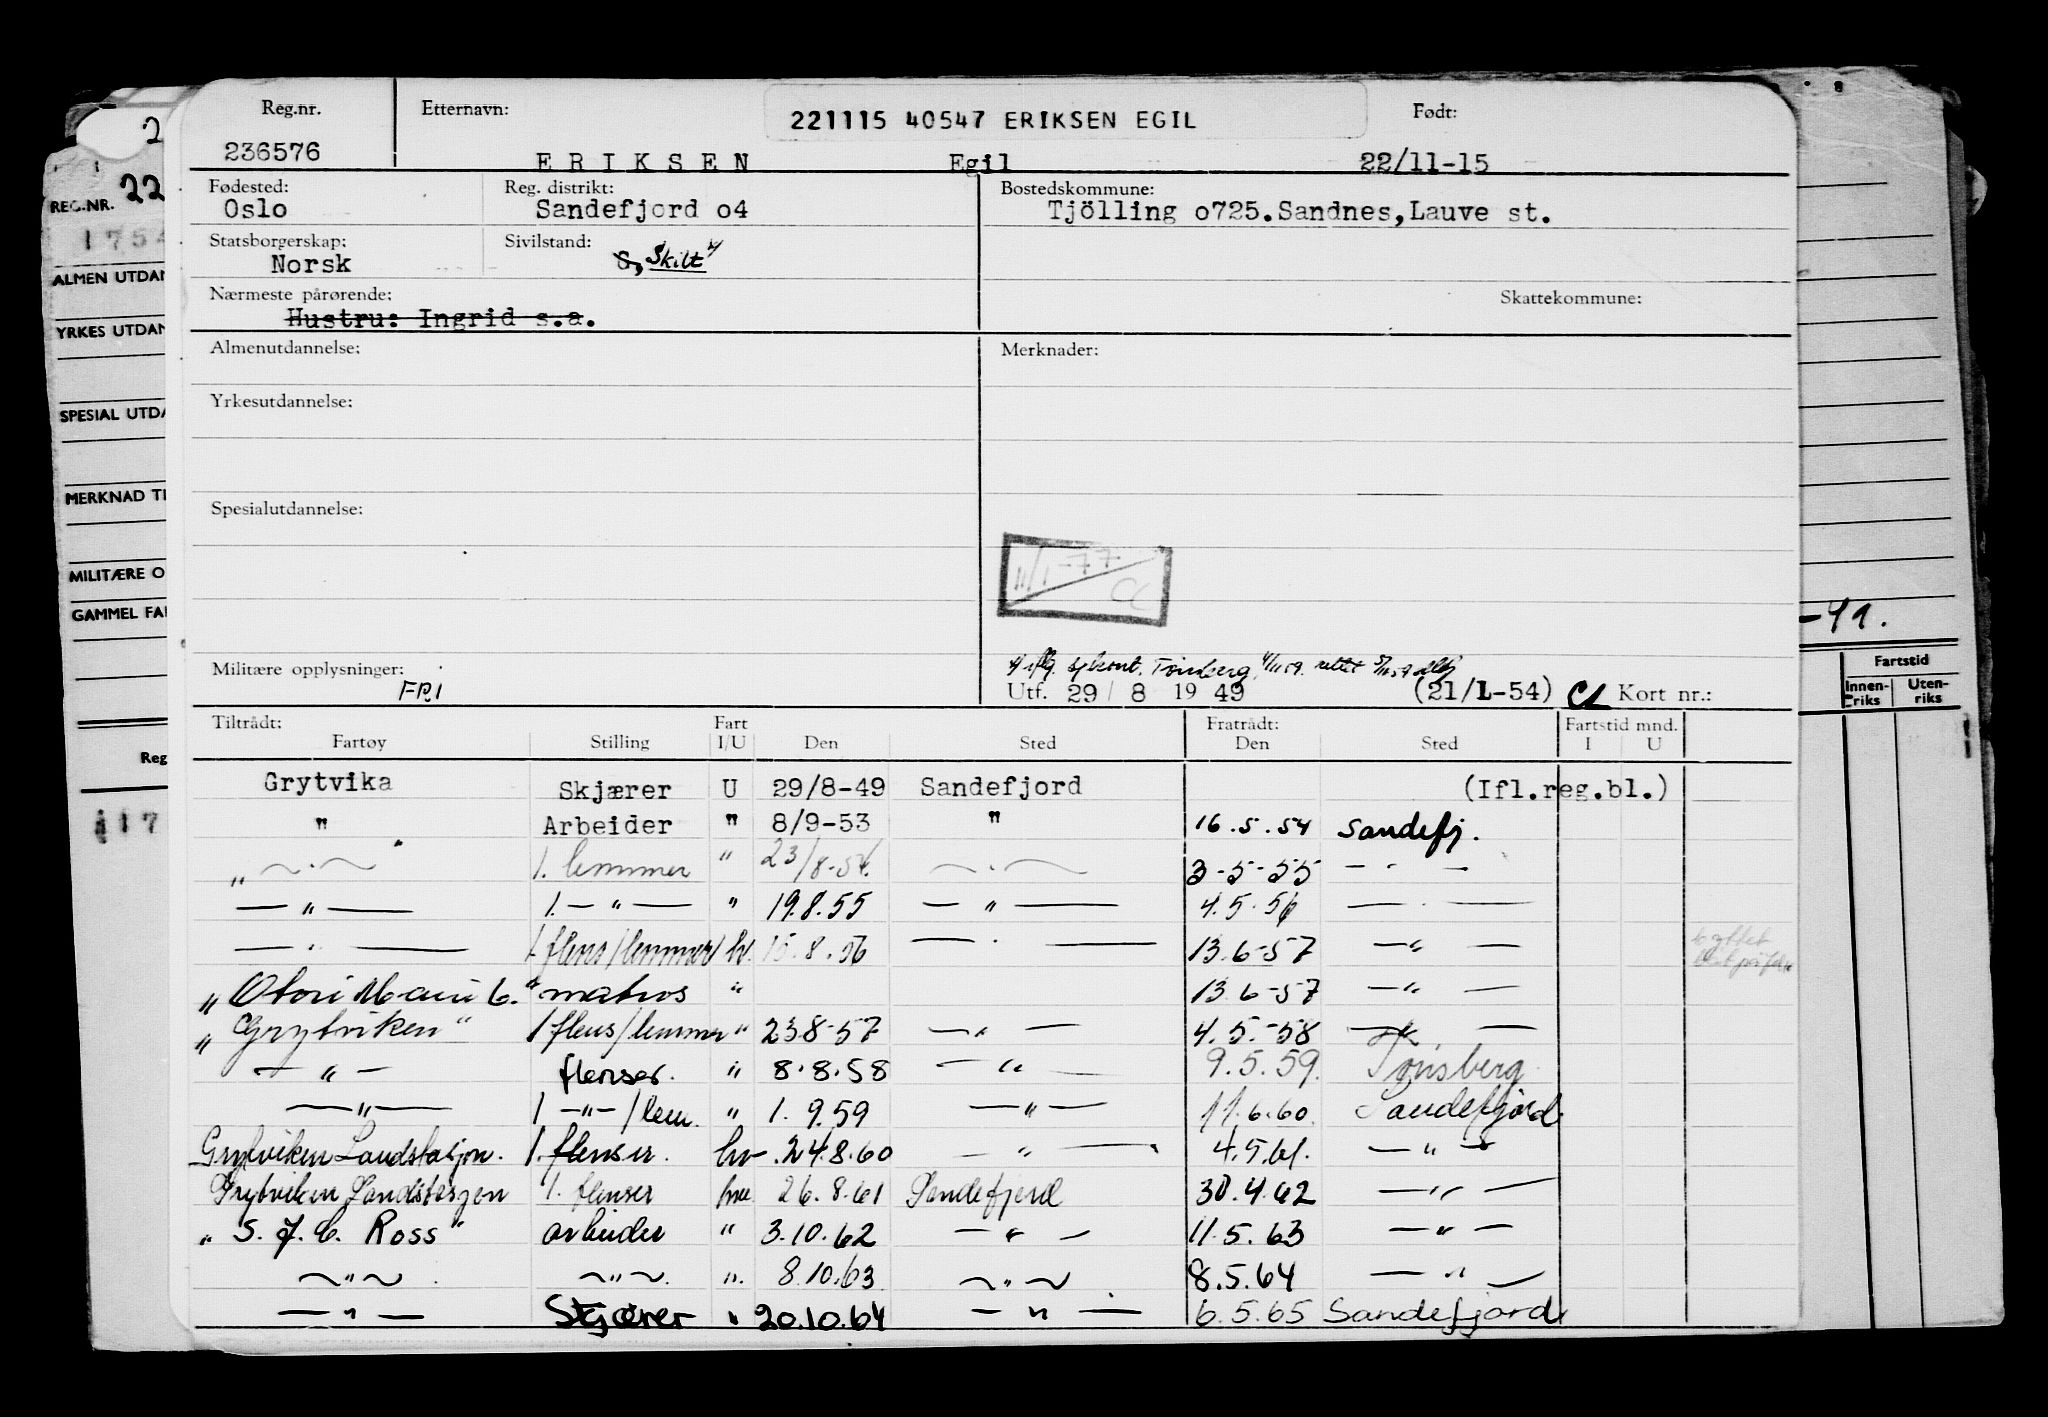 Reg.nr. Etternavn: 221115 40547 ERIKSEN EGIL Født:
236576 E R I K S E N Egil 22/11-15
Fødested: Reg. distrikt: Bostedskommune:
Oslo Sandefjord o4 Tjölling o725.Sandnes,Lauve st.
Statsborgerskap: Sivilstand:
Norsk G, Skilt
Nærmeste pårørende: Skattekommune:
Hustru: Ingrid s.a.
Almenutdannelse: Merknader:
Yrkesutdannelse:
Spesialutdannelse:
11/1-77
CL
Militære opplysninger: Tønsberg, 4/11 59. rettet
FRI Utf. 29/ 8 19 49 (21/1-54) CL Kort nr.:
Tiltrådt: Fart Fratrådt: Fartstid mnd.
Fartøy Stilling I/U Den Sted Den Sted I U
Grytvika Skjærer U 29/8-49 Sandefjord (Ifl.reg.bl.)
" Arbeider " 8/9-53 " 16.5.54 Sandefj.
„ ~.~ 1. lemmer " 23/8-54. ~.~ 3-5-55 — - —
— " — 1. — " — " 19.8.55 — " — 4.5.56 — . —
— " — 1 flens/lemmer hv. 15.8.56 — . — 13.6-57 — " —
„ matros " 13.6-57 — " —
„Grytviken" 1 flens/lemmer " 23.8-57 — " — 4.5.-58 — " —
— " — flenser. " 8.8.58 — " — 9.5.59. Tønsberg
— " — 1 — " — /lem. " 1.9.59 — " — 11.6.60. Sandefjord
Grytviken Landstasjon. 1. flenser. hv .24.8.60 — " — 4.5.61. — " —
Grytviken Landstasjon 1. flenser 26.8.61 Sandefjord 30.4.62 — " —
„S. J. C. Ross" arbeider " 3.10.62 — " — 11.5.63 — " —
~ " ~ ~ " ~. ". 8.10.63 ~ " ~ 8.5.64 — " —
— " — Skjærer " 20.10.64 — " — 6.5.65 Sandefjord
2
REG.NR. 22
1754
ALMEN UTDAN
YRKES UTDAN
SPESIAL UTDA
MERKNAD TI
MILITÆRE O
GAMMEL FA
Reg
117
-41.
Fartstid
Innen- Uten-
riks riks